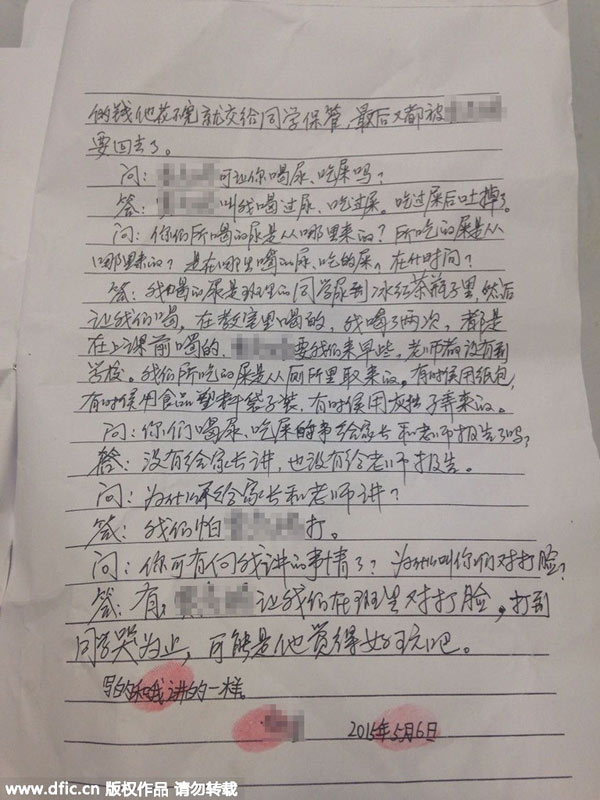 的钱他花不完就交给同学保管，最后又都被
要回去了。
问：可让你喝尿、吃屎吗？
答：叫我喝过尿、吃过屎。吃过屎后吐掉了。
问：你们所喝的尿是从哪里来的？所吃的屎是从
哪里来的？是在哪里喝的尿、吃的屎，在什时间？
答：我喝的尿是班里的同学尿到冰红茶瓶子里，然后
让我们喝，在教室里喝的，我喝了两次，都是
在上课前喝的，要我们来早些，老师都没有到
学校。我们所吃的屎是从厕所里取来的。有时候用纸包，
有时候用食品塑料袋子装，有时候用灰挫子弄来的。
问：你们喝尿、吃屎的事给家长和老师报告了吗？
答：没有给家长讲，也没有给老师报告。
问：为什么不给家长和老师讲？
答：我们怕打。
问：你可有何我讲的事情了？为什么叫你们对打脸？
答：有，让我们在班里对打脸，打到
同学哭为止，可能是他觉得好玩吧。
写的和我讲的一样。
2015年5月6日
www.dfic.cn 版权作品 请勿转载